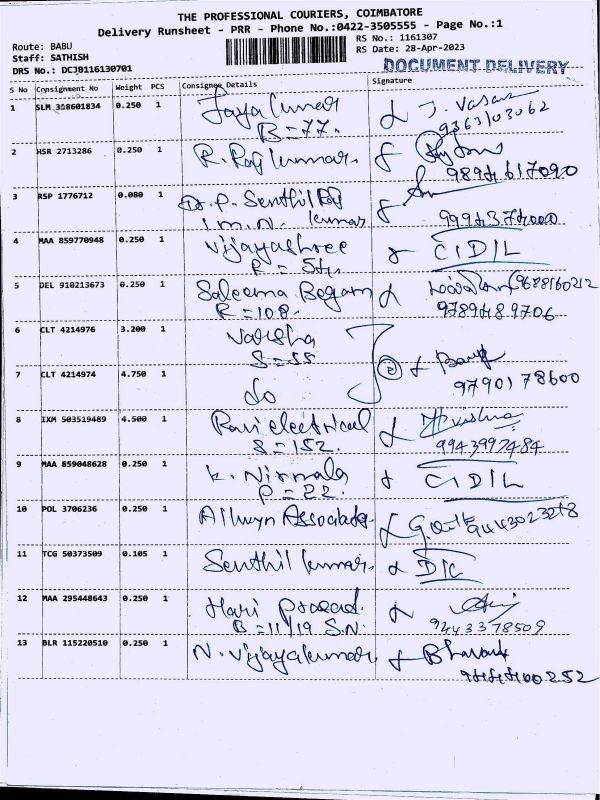 THE PROFESSIONAL COURIERS, COIMBATORE
Delivery Runsheet - PRR - Phone No.:0422-3505555 - Page No.:1
Route: BABU
Staff: SATHISH
DRS No.: DCJB116130701
RS No.: 1161307
RS Date: 28-Apr-2023
DOCUMENT DELIVERY
S No Consignment No Weight PCS Consignee Details Signature
1 SLM 308601834 0.250 1 Jaya kumar J. Vasan
B=77. 9363103062
2 HSR 2713286 0.250 1 R. Raj kumar.
9894617090
3 RSP 1776712 0.080 1 Dr. P. Senthil Raj
I.M.N. kumar 9994374000
4 MAA 859770948 0.250 1 Vijayashree CIDIL
R = 54.
5 DEL 910213673 0.250 1 Saleema Begam 9688160212
R=108. 9789489706
6 CLT 4214976 3.200 1 Varsha
S=55
7 CLT 4214974 4.750 1 do 2
9790178600
8 IXM 503519489 4.500 1 Ravi electrical
S=152. 9943997484
9 MAA 859048628 0.250 1 K. Nirmala CIDIL
P=22.
10 POL 3706236 0.250 1 Allwyn Associates. 9443023278
11 TCG 50373509 0.105 1 Senthil kumar.
12 MAA 295448643 0.250 1 Hari Prasad.
B=11/19 S.N. 9443378509
13 BLR 115220510 0.250 1 N. Vijayakumar.
9444400252